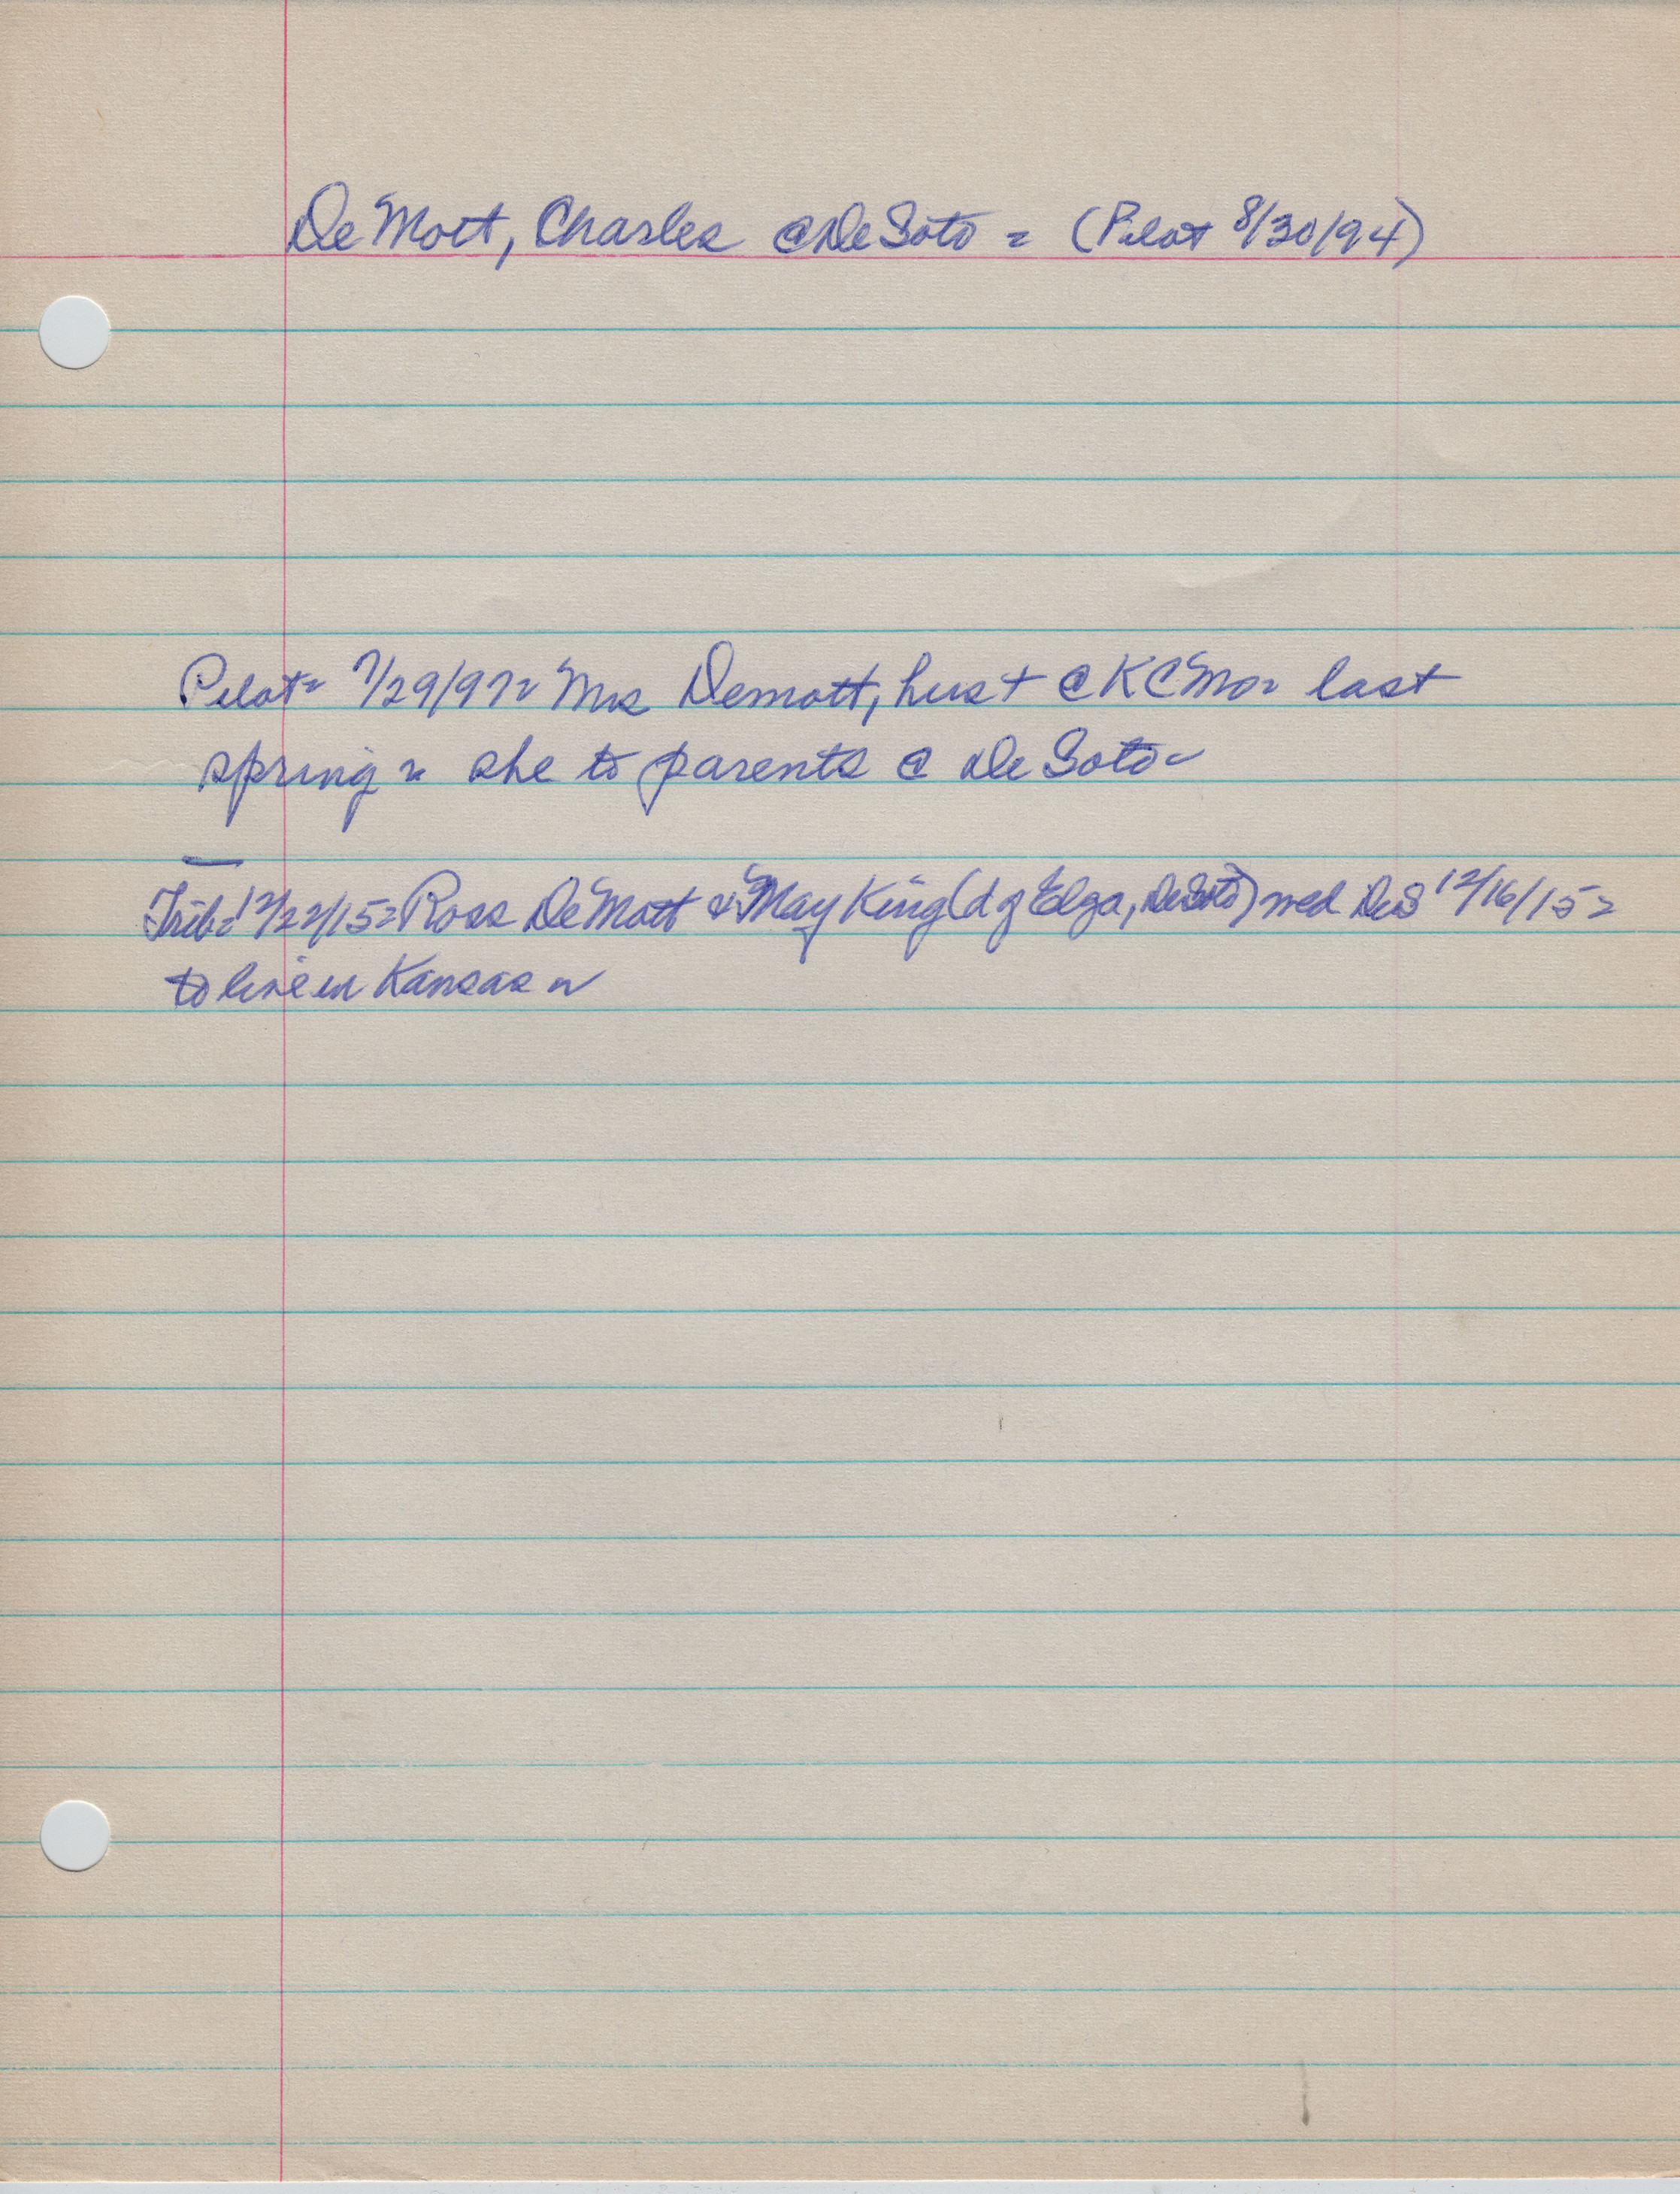 DeMott, Charles @ DeSoto = (Pilot 8/30/94)
Pilot = 7/29/97 = Mrs Demott, hus + @ KCMo = last
spring = she to parents @ DeSoto -
Trib = 12/22/15 = Ross DeMott & May King (d of Elga, DeSoto) med DeS 12/16/15 =
to live in Kansas ~